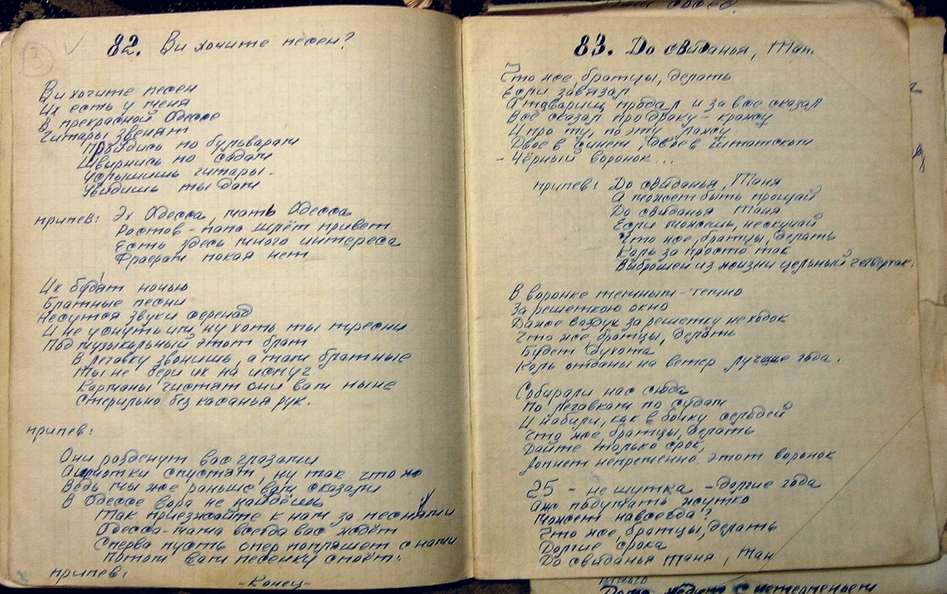 3
82. Ви хочите песен?
Ви хочите песен
Их есть у меня
В прекрасной Одессе
Гитары звенят
Пройдись по бульварам
Швырнись по садам
Услышишь гитары -
Увидишь ты дам
припев: Эх Одесса, мать Одесса
Ростов - папа шлёт привет
Есть здесь много интереса
Фраерам покоя нет
Их будят ночью
Блатные песни
Несутся звуки серенад
И не уснуть им, ну хоть ты тресни
Под музыкальный этот блат
В легавку звонишь, а там блатные
Ты не бери их на испуг
Карманы чистят они вам ныне
Стерильно без касанья рук.
припев:
Они разденут вас глазами
А шмотки спустят, ну так что ж
Ведь мы же раньше вам сказали
В Одессе вора не найдёшь
Так приезжайте к нам за песнями
Одесса-мама всегда вас ждёт
Сперва пусть опер попляшет с нами
Потом вам песенку споёт!
припев:
-Конец-
83. До свиданья, Тан.
Что же, братцы, делать
Если завязал
А товарищ продал и за все сказал
Всё сказал про драку - кражу
И про ту, по эту
Двое в синем, двое в штатском
- Чёрный воронок...
припев: До свиданья, Таня
А может быть прощай
До свиданья Таня
Если можешь, нескучай
Что же, братцы, делать
Коль за просто так
Выброшен из жизни цельный четвертак.
В воронке темным - темно
За решеткою окно
Даже воздух за решетку не ходок
Что же братцы, делать
Будет духота
Коль отданы на ветер лучшие года.
Собирали нас сюда
По легавкам по судам
И набили, как в бочку сельдей
Что же, братцы, делать
Дайте только срок
Лопнет непременно этот воронок
25 - не шутка - Долгие года
Аж подумать жутко
Может навсегда?
Что же, братцы, делать
Долгие срока
До свиданья Таня, Тан